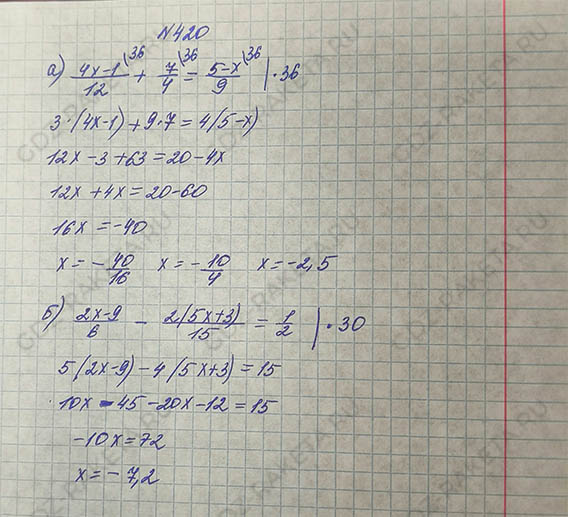 N420
а) (4x-1)/12 \36 + 7/4 \36 = (5-x)/9 \36 | · 36
3·(4x-1)+9·7=4(5-x)
12x-3+63=20-4x
12x+4x=20-60
16x=-40
x=-40/16 x=-10/4 x=-2,5
б) (2x-9)/6 - 2(5x+3)/15 = 1/2 | · 30
5(2x-9)-4(5x+3)=15
10x-45-20x-12=15
-10x=72
x=-7,2
GDZ-RAKETA.RU